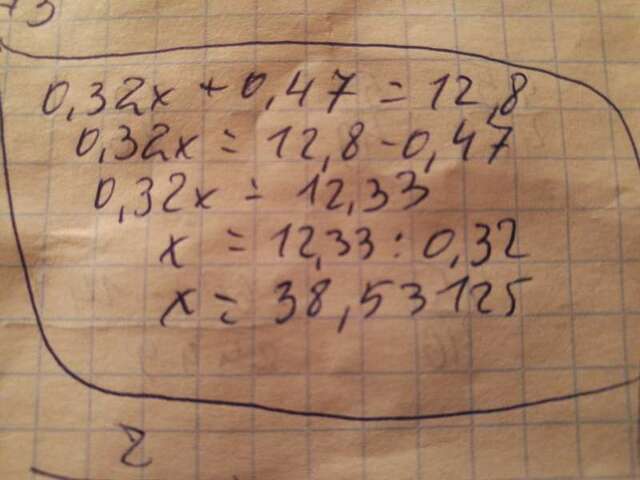 0,32x + 0,47 = 12,8
0,32x = 12,8 - 0,47
0,32x = 12,33
x = 12,33 : 0,32
x = 38,53125
2